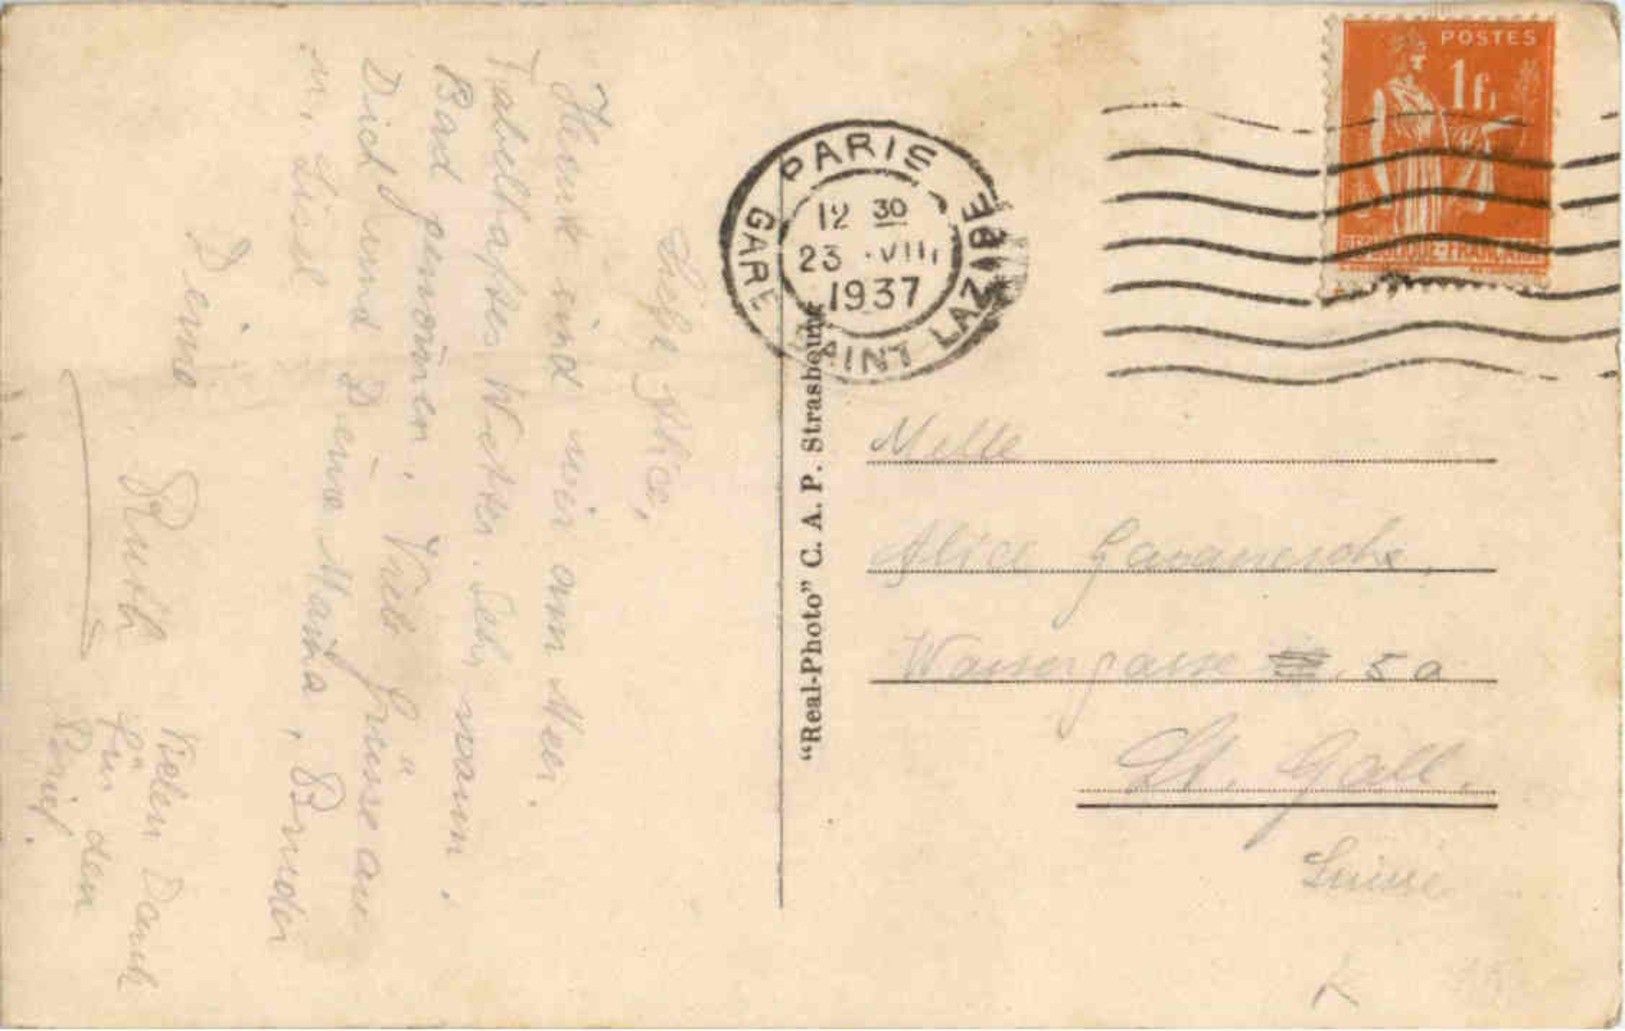 Liebe Alice,
Heute sind wir am Meer.
Fabelhaftes Wetter. Sehr warm,
Bad genommen. Viele Grüsse an
Dich und Deine Mama, Bruder
u. Lisel
Deine
Ruth
Vielen Dank
für den
Brief.
"Real-Photo" C. A. P. Strasbourg
PARIS
GARE SAINT LAZARE
12 30
23 VIII
1937
POSTES
1 fr
REPUBLIQUE-FRANÇAISE
Melle
Alice
Wassergasse 5a
St. Gall.
Suisse